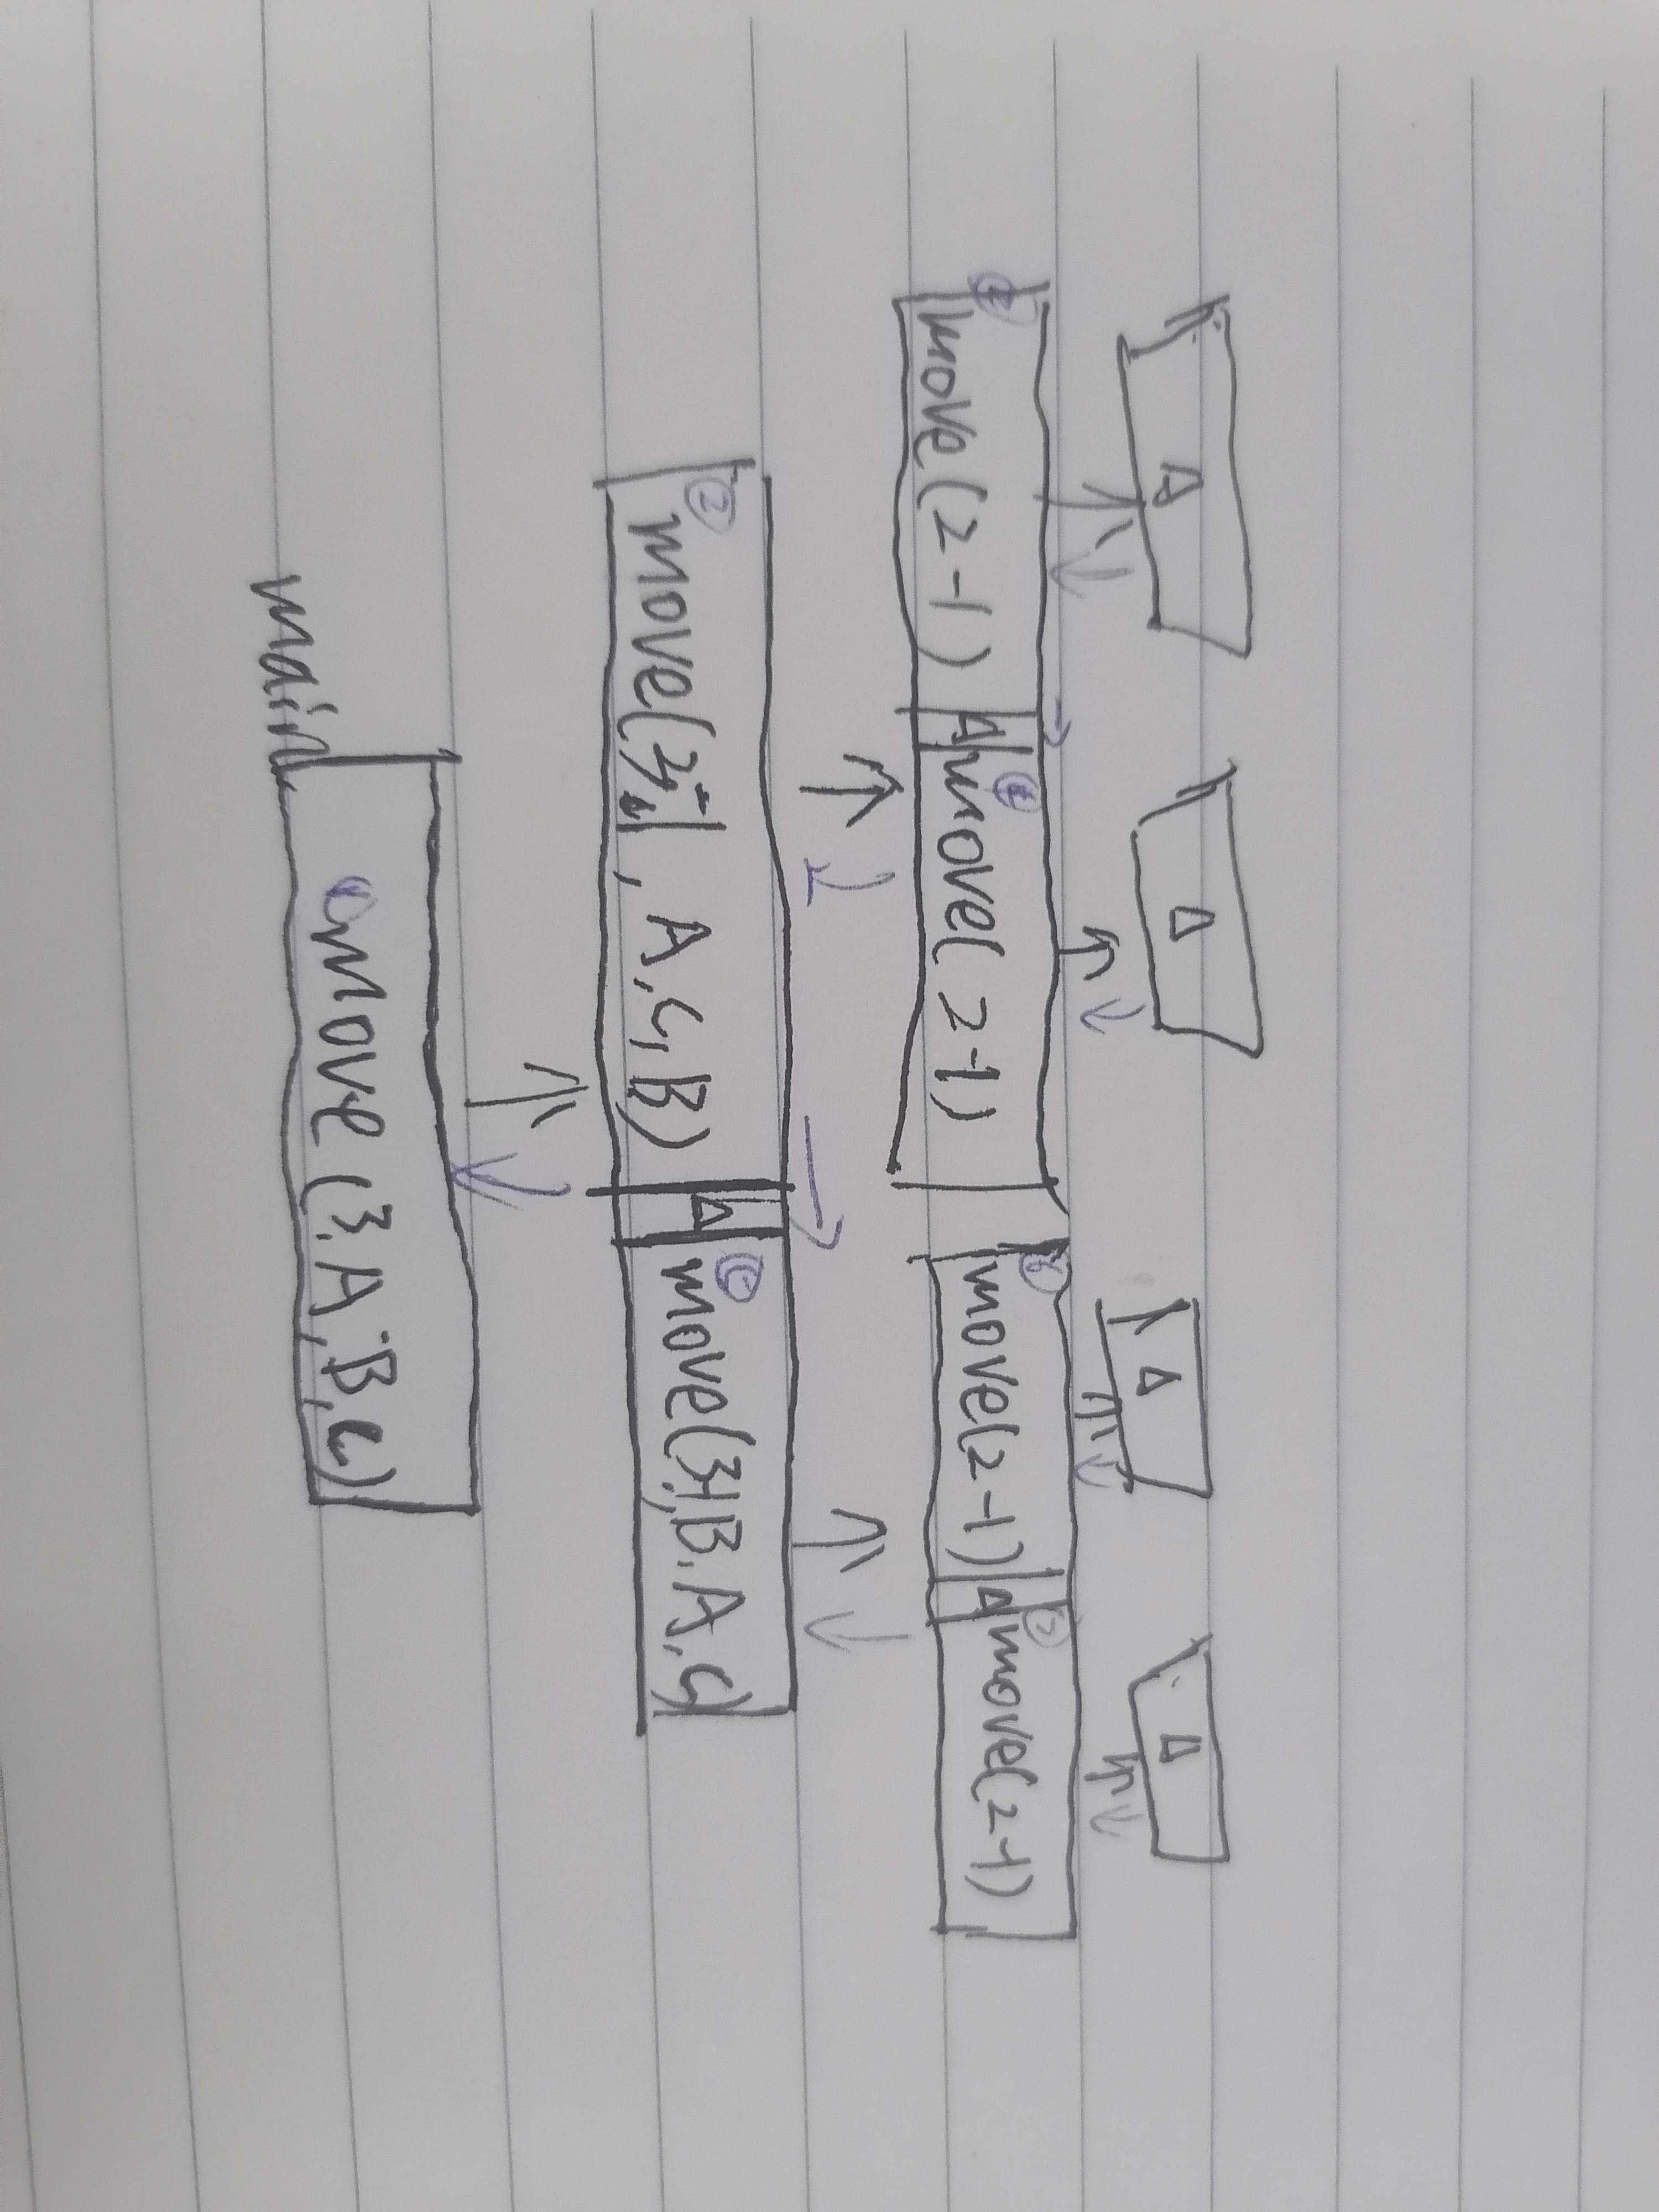 Δ Δ Δ Δ
move(2-1) Δ move(2-1) move(2-1) Δ move(2-1)
② move(3-1, A, C, B) Δ move(3-1, B, A, C)
main
① move(3, A, B, C)